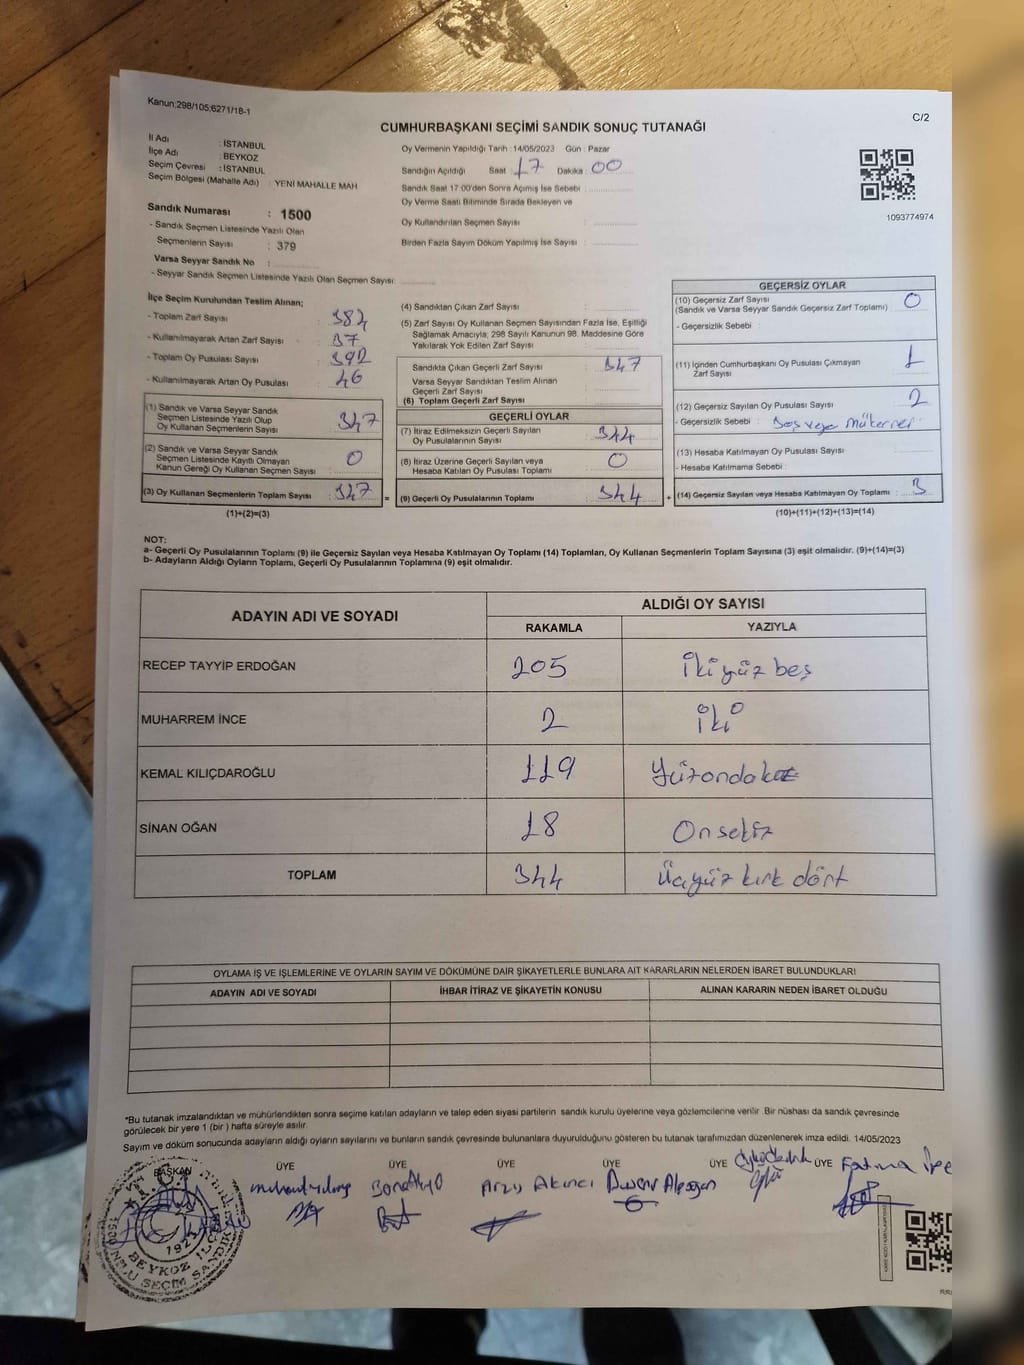 Kanun;298/105;6271/18-1
C/2
CUMHURBAŞKANI SEÇİMİ SANDIK SONUÇ TUTANAĞI
İl Adı : İSTANBUL
İlçe Adı : BEYKOZ
Seçim Çevresi : İSTANBUL
Seçim Bölgesi (Mahalle Adı) : YENİ MAHALLE MAH
Sandık Numarası : 1500
- Sandık Seçmen Listesinde Yazılı Olan
Seçmenlerin Sayısı : 379
Varsa Seyyar Sandık No :
- Seyyar Sandık Seçmen Listesinde Yazılı Olan Seçmen Sayısı:
Oy Vermenin Yapıldığı Tarih : 14/05/2023 Gün : Pazar
Sandığın Açıldığı Saat : 17 Dakika : 00
Sandık Saat 17:00'den Sonra Açımış İse Sebebi :
Oy Verme Saati Bitiminde Sırada Bekleyen ve
Oy Kullandırılan Seçmen Sayısı :
Birden Fazla Sayım Döküm Yapılmış İse Sayısı :
1093774974
İlçe Seçim Kurulundan Teslim Alınan;
- Toplam Zarf Sayısı : 384
- Kullanılmayarak Artan Zarf Sayısı : 37
- Toplam Oy Pusulası Sayısı : 392
- Kullanılmayarak Artan Oy Pusulası : 46
(1) Sandık ve Varsa Seyyar Sandık
Seçmen Listesinde Yazılı Olup
Oy Kullanan Seçmenlerin Sayısı : 347
(2) Sandık ve Varsa Seyyar Sandık
Seçmen Listesinde Kayıtlı Olmayan
Kanun Gereği Oy Kullanan Seçmen Sayısı : 0
(3) Oy Kullanan Seçmenlerin Toplam Sayısı : 347 =
(1)+(2)=(3)
(4) Sandıktan Çıkan Zarf Sayısı :
(5) Zarf Sayısı Oy Kullanan Seçmen Sayısından Fazla İse, Eşitliği
Sağlamak Amacıyla; 298 Sayılı Kanunun 98. Maddesine Göre
Yakılarak Yok Edilen Zarf Sayısı :
Sandıkta Çıkan Geçerli Zarf Sayısı : 347
Varsa Seyyar Sandıktan Teslim Alınan
Geçerli Zarf Sayısı :
(6) Toplam Geçerli Zarf Sayısı :
GEÇERLİ OYLAR
(7) İtiraz Edilmeksizin Geçerli Sayılan
Oy Pusulalarının Sayısı : 344
(8) İtiraz Üzerine Geçerli Sayılan veya
Hesaba Katılan Oy Pusulası Toplamı : 0
(9) Geçerli Oy Pusulalarının Toplamı : 344 +
GEÇERSİZ OYLAR
(10) Geçersiz Zarf Sayısı
(Sandık ve Varsa Seyyar Sandık Geçersiz Zarf Toplamı) : 0
- Geçersizlik Sebebi :
(11) İçinden Cumhurbaşkanı Oy Pusulası Çıkmayan
Zarf Sayısı : 1
(12) Geçersiz Sayılan Oy Pusulası Sayısı : 2
- Geçersizlik Sebebi : Boş veya Mükerrer
(13) Hesaba Katılmayan Oy Pusulası Sayısı :
- Hesaba Katılmama Sebebi :
(14) Geçersiz Sayılan veya Hesaba Katılmayan Oy Toplamı : 3
(10)+(11)+(12)+(13)=(14)
NOT:
a- Geçerli Oy Pusulalarının Toplamı (9) ile Geçersiz Sayılan veya Hesaba Katılmayan Oy Toplamı (14) Toplamları, Oy Kullanan Seçmenlerin Toplam Sayısına (3) eşit olmalıdır. (9)+(14)=(3)
b- Adayların Aldığı Oyların Toplamı, Geçerli Oy Pusulalarının Toplamına (9) eşit olmalıdır.
ADAYIN ADI VE SOYADI ALDIĞI OY SAYISI
RAKAMLA YAZIYLA
RECEP TAYYİP ERDOĞAN 205 ikiyüz beş
MUHARREM İNCE 2 iki
KEMAL KILIÇDAROĞLU 119 Yüzondokuz
SİNAN OĞAN 18 Onsekiz
TOPLAM 344 Üçyüz kırk dört
OYLAMA İŞ VE İŞLEMLERİNE VE OYLARIN SAYIM VE DÖKÜMÜNE DAİR ŞİKAYETLERLE BUNLARA AİT KARARLARIN NELERDEN İBARET BULUNDUKLARI
ADAYIN ADI VE SOYADI İHBAR İTİRAZ VE ŞİKAYETİN KONUSU ALINAN KARARIN NEDEN İBARET OLDUĞU
*Bu tutanak imzalandıktan ve mühürlendikten sonra seçime katılan adayların ve talep eden siyasi partilerin sandık kurulu üyelerine veya gözlemcilerine verilir. Bir nüshası da sandık çevresinde
görülecek bir yere 1 (bir) hafta süreyle asılır.
Sayım ve döküm sonucunda adayların aldığı oyların sayılarını ve bunların sandık çevresinde bulunanlara duyurulduğunu gösteren bu tutanak tarafımızdan düzenlenerek imza edildi. 14/05/2023
BAŞKAN ÜYE ÜYE ÜYE ÜYE ÜYE ÜYE
Arzu Akıncı
Fatma İpe
T.C.
192
BEYKOZ İLÇE
1500 NOLU SEÇİM SANDIK